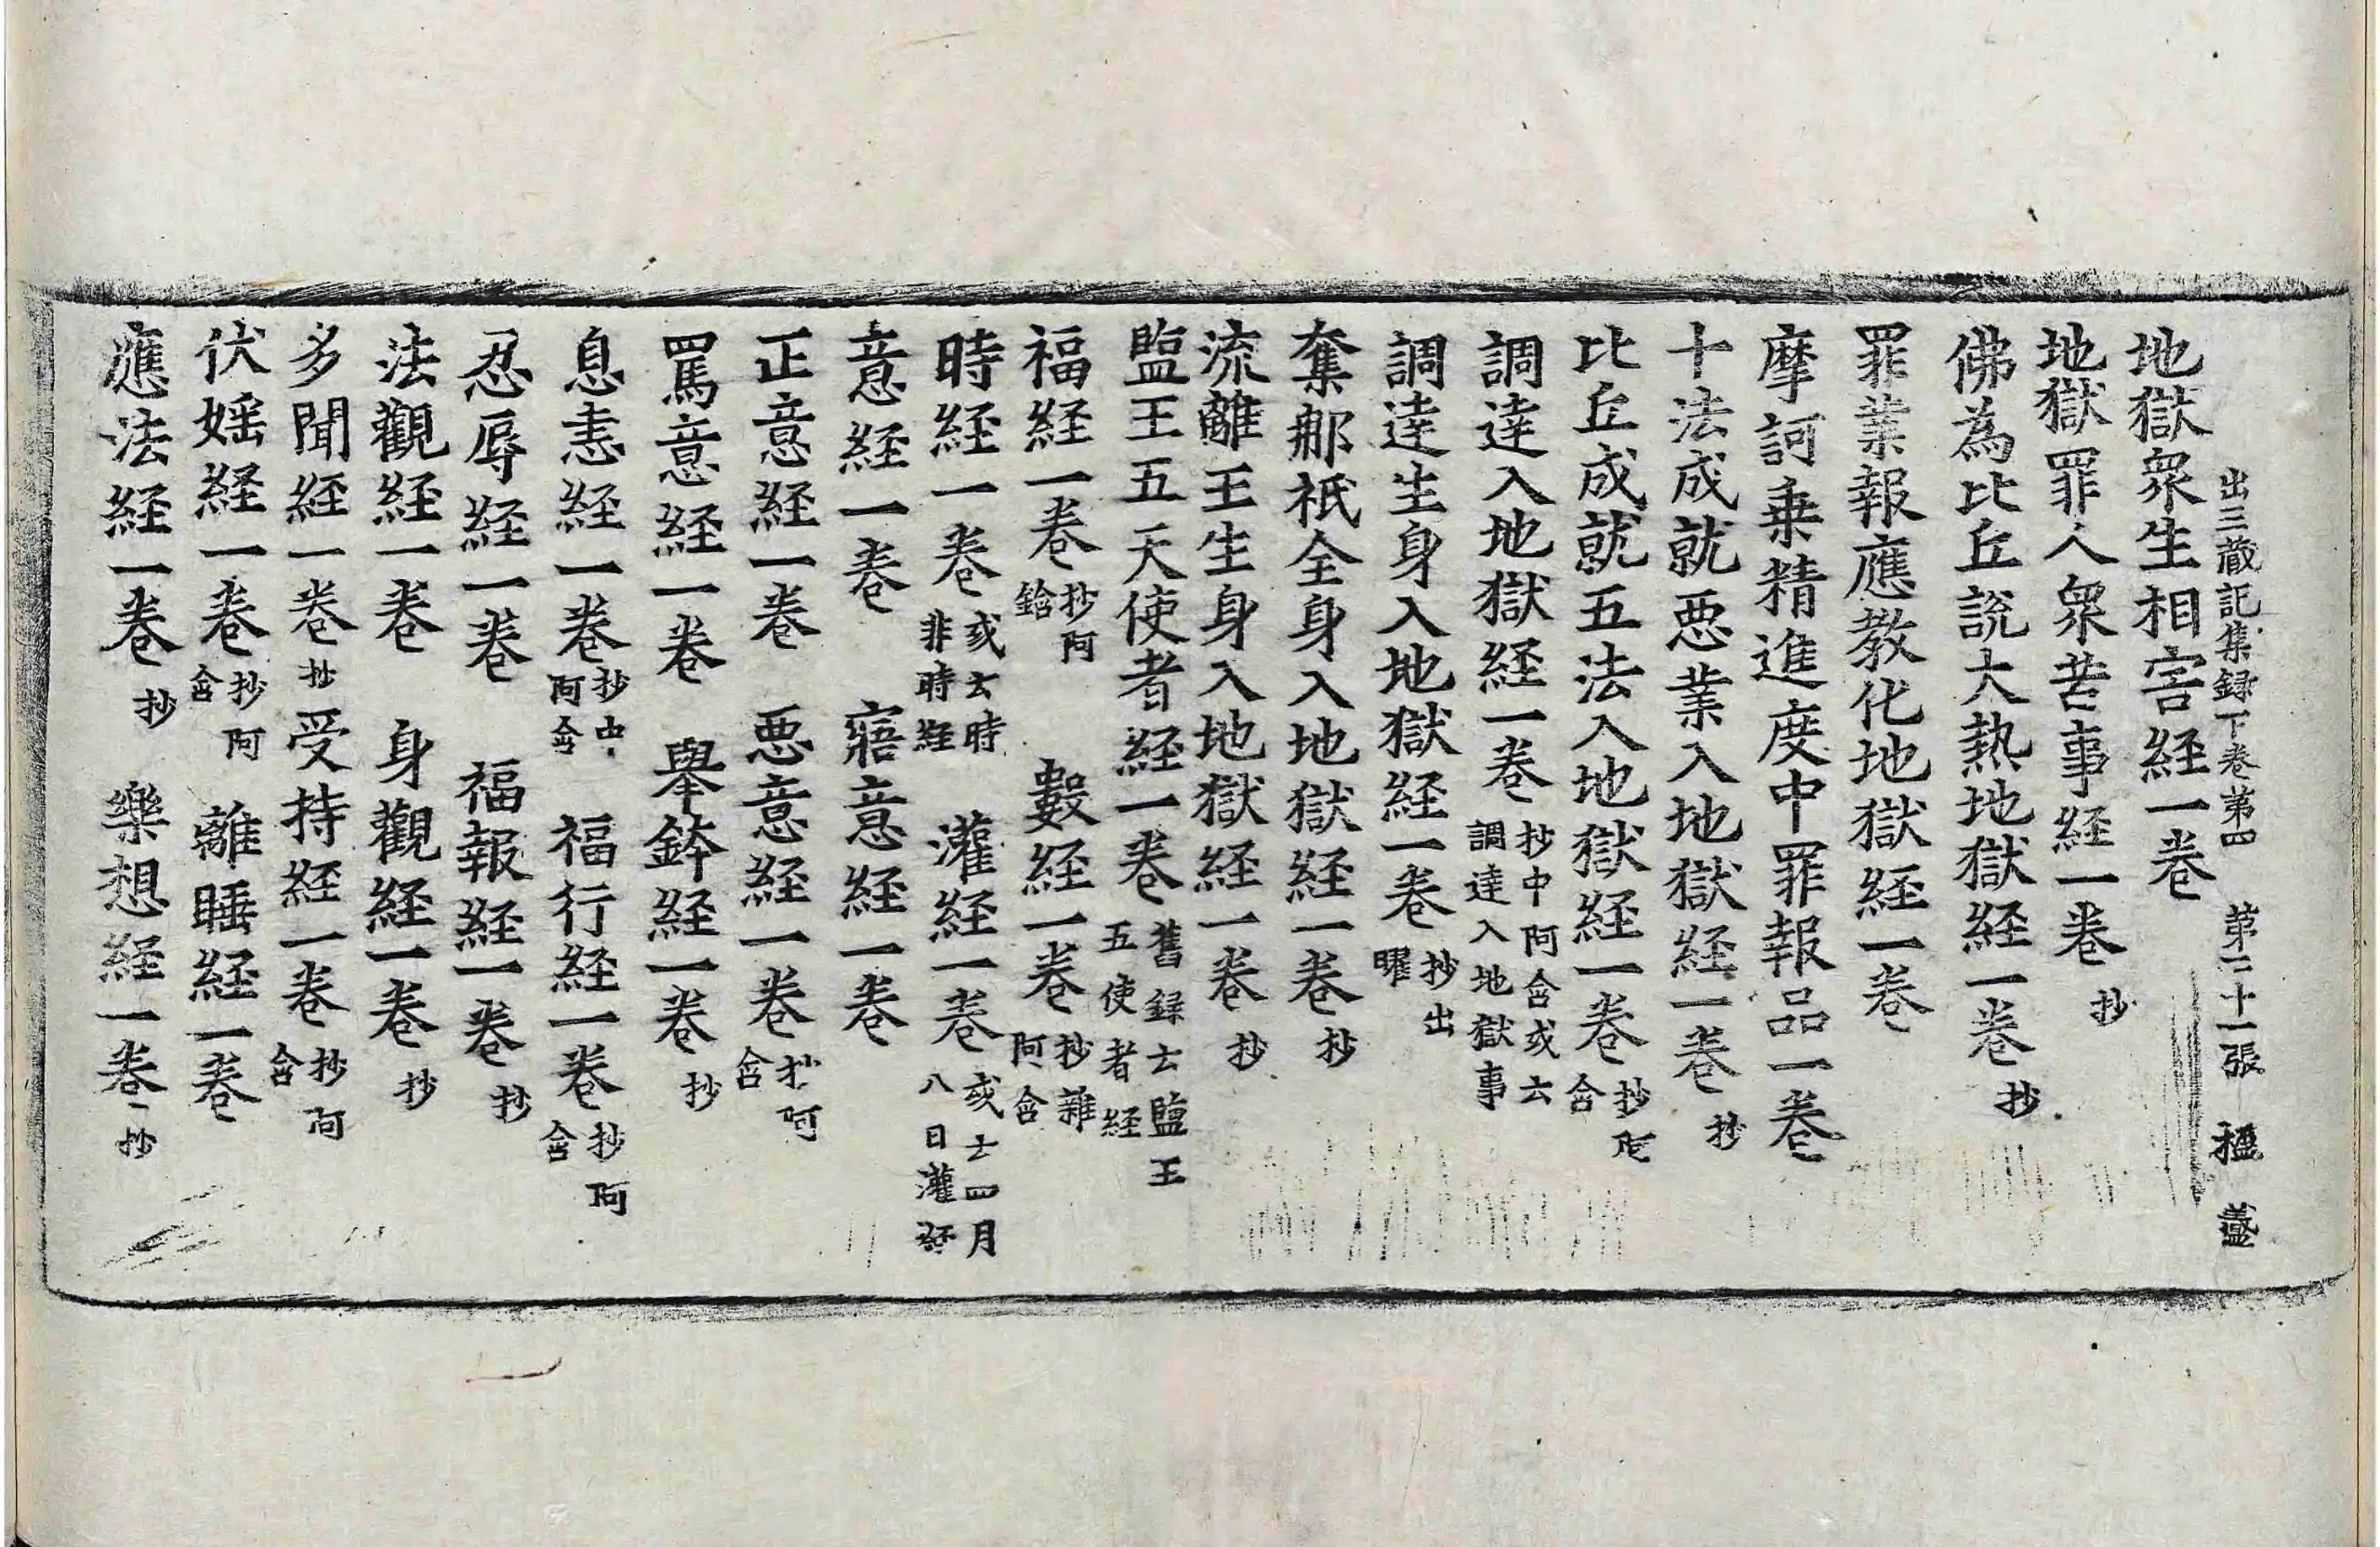 出三藏記集録下卷第四 第二十一張 楹 盡
地獄衆生相害経一卷
地獄罪人衆苦事経一卷 抄
佛為比丘説大熱地獄経一卷 抄
罪業報應教化地獄経一卷
摩訶乗精進度中罪報品一卷
十法成就悪業入地獄経一卷 抄
比丘成就五法入地獄経一卷 抄阿含
調達入地獄経一卷 抄中阿含或云調達入地獄事
調達生身入地獄経一卷 抄出曜
奪那祇全身入地獄経一卷 抄
流離王生身入地獄経一卷 抄
監王五天使者経一卷 舊録云監王五使者経
福経一卷 抄阿鋡 數経一卷 抄雜阿含
時経一卷 或云時非時経 灌経一卷 或云四月八日灌経
意経一卷 寤意経一卷
正意経一卷 悪意経一卷 抄阿含
罵意経一卷 舉鉢経一卷 抄
息恚経一卷 抄中阿含 福行経一卷 抄阿含
忍辱経一卷 福報経一卷 抄
法觀経一卷 身觀経一卷 抄
多聞経一卷 抄 受持経一卷 抄阿含
伏婬経一卷 抄阿含 離睡経一卷
應法経一卷 抄 樂想経一卷 抄